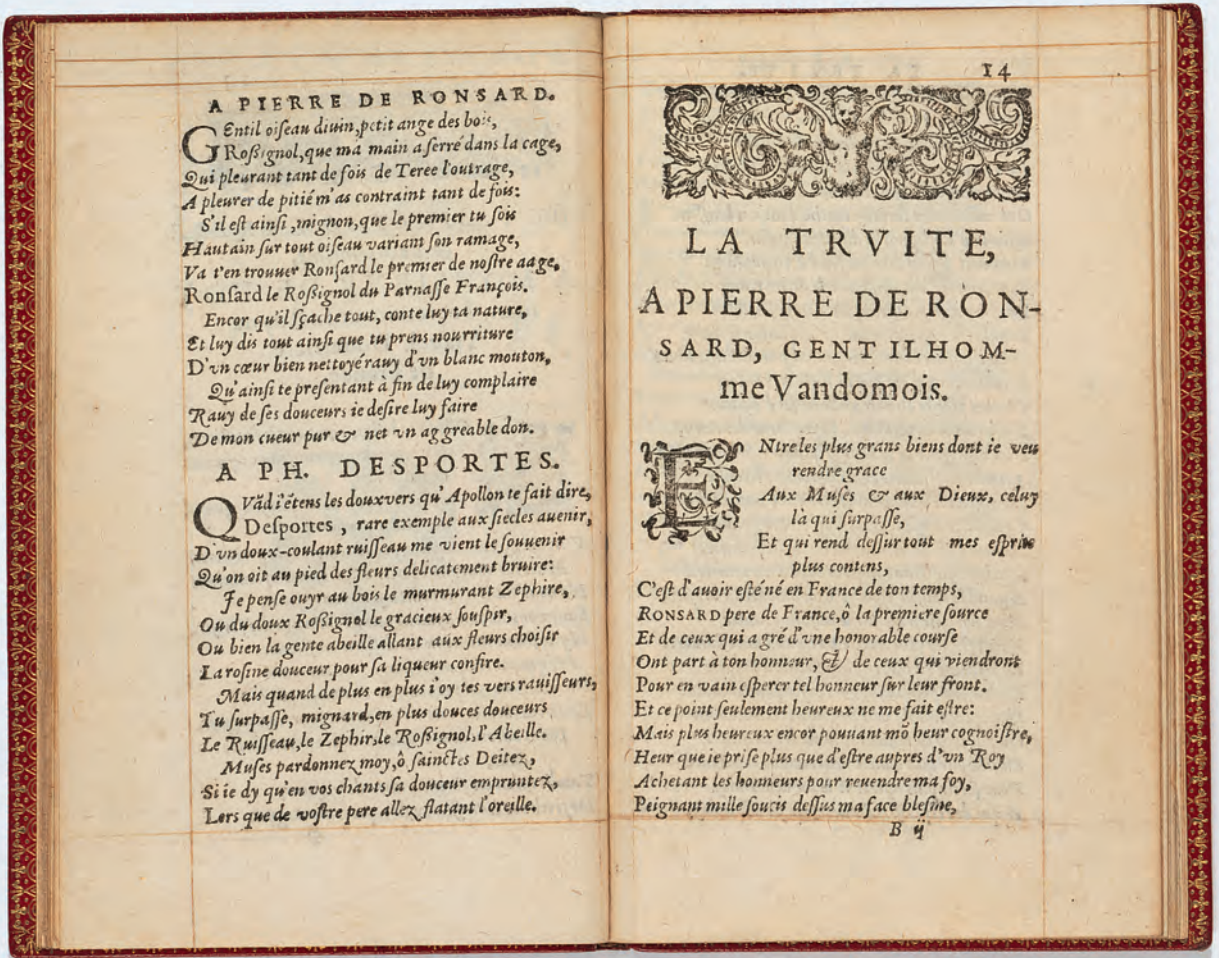 A PIERRE DE RONSARD.
GEntil oiſeau diuin, petit ange des bois,
Roßignol, que ma main a ſerré dans la cage,
Qui pleurant tant de fois de Teree l'outrage,
A pleurer de pitié m'as contraint tant de fois:
S'il eſt ainſi, mignon, que le premier tu ſois
Hautain ſur tout oiſeau variant ſon ramage,
Va t'en trouuer Ronſard le premier de noſtre aage,
Ronſard le Roßignol du Parnaſſe François.
Encor qu'il ſçache tout, conte luy ta nature,
Et luy dis tout ainſi que tu prens nourriture
D'vn cœur bien nettoyé rauy d'vn blanc mouton,
Qu'ainſi te preſentant à fin de luy complaire
Rauy de ſes douceurs ie deſire luy faire
De mon cueur pur & net vn aggreable don.
A PH. DESPORTES.
QVãd i'étens les doux vers qu'Apollon te fait dire,
Deſportes, rare exemple aux ſiecles auenir,
D'vn doux-coulant ruiſſeau me vient le ſouuenir
Qu'on oit au pied des fleurs delicatement bruire:
Je penſe ouyr au bois le murmurant Zephire,
Ou du doux Roßignol le gracieux ſouſpir,
Ou bien la gente abeille allant aux fleurs choiſir
La roſine douceur pour ſa liqueur confire.
Mais quand de plus en plus i'oy tes vers rauiſſeurs,
Tu ſurpaſſe, mignard, en plus douces douceurs
Le Ruiſſeau, le Zephir, le Roßignol, l'Abeille.
Muſes pardonnez moy, ô ſainctes Deitez,
Si ie dy qu'en vos chants ſa douceur empruntez,
Lors que de voſtre pere allez flatant l'oreille.
14
LA TRVITE,
A PIERRE DE RON-
SARD, GENTILHOM-
me Vandomois.
ENtre les plus grans biens dont ie veu
rendre grace
Aux Muſes & aux Dieux, celuy
là qui ſurpaſſe,
Et qui rend deſſur tout mes eſprits
plus contens,
C'eſt d'auoir eſté né en France de ton temps,
RONSARD pere de France, ô la premiere ſource
Et de ceux qui a gré d'vne honorable courſe
Ont part à ton honneur, & de ceux qui viendront
Pour en vain eſperer tel honneur ſur leur front.
Et ce point ſeulement heureux ne me fait eſtre:
Mais plus heureux encor pouuant mõ heur cognoiſtre,
Heur que ie priſe plus que d'eſtre aupres d'vn Roy
Achetant les honneurs pour reuendre ma foy,
Peignant mille ſoucis deſſus ma face bleſme,
B ij